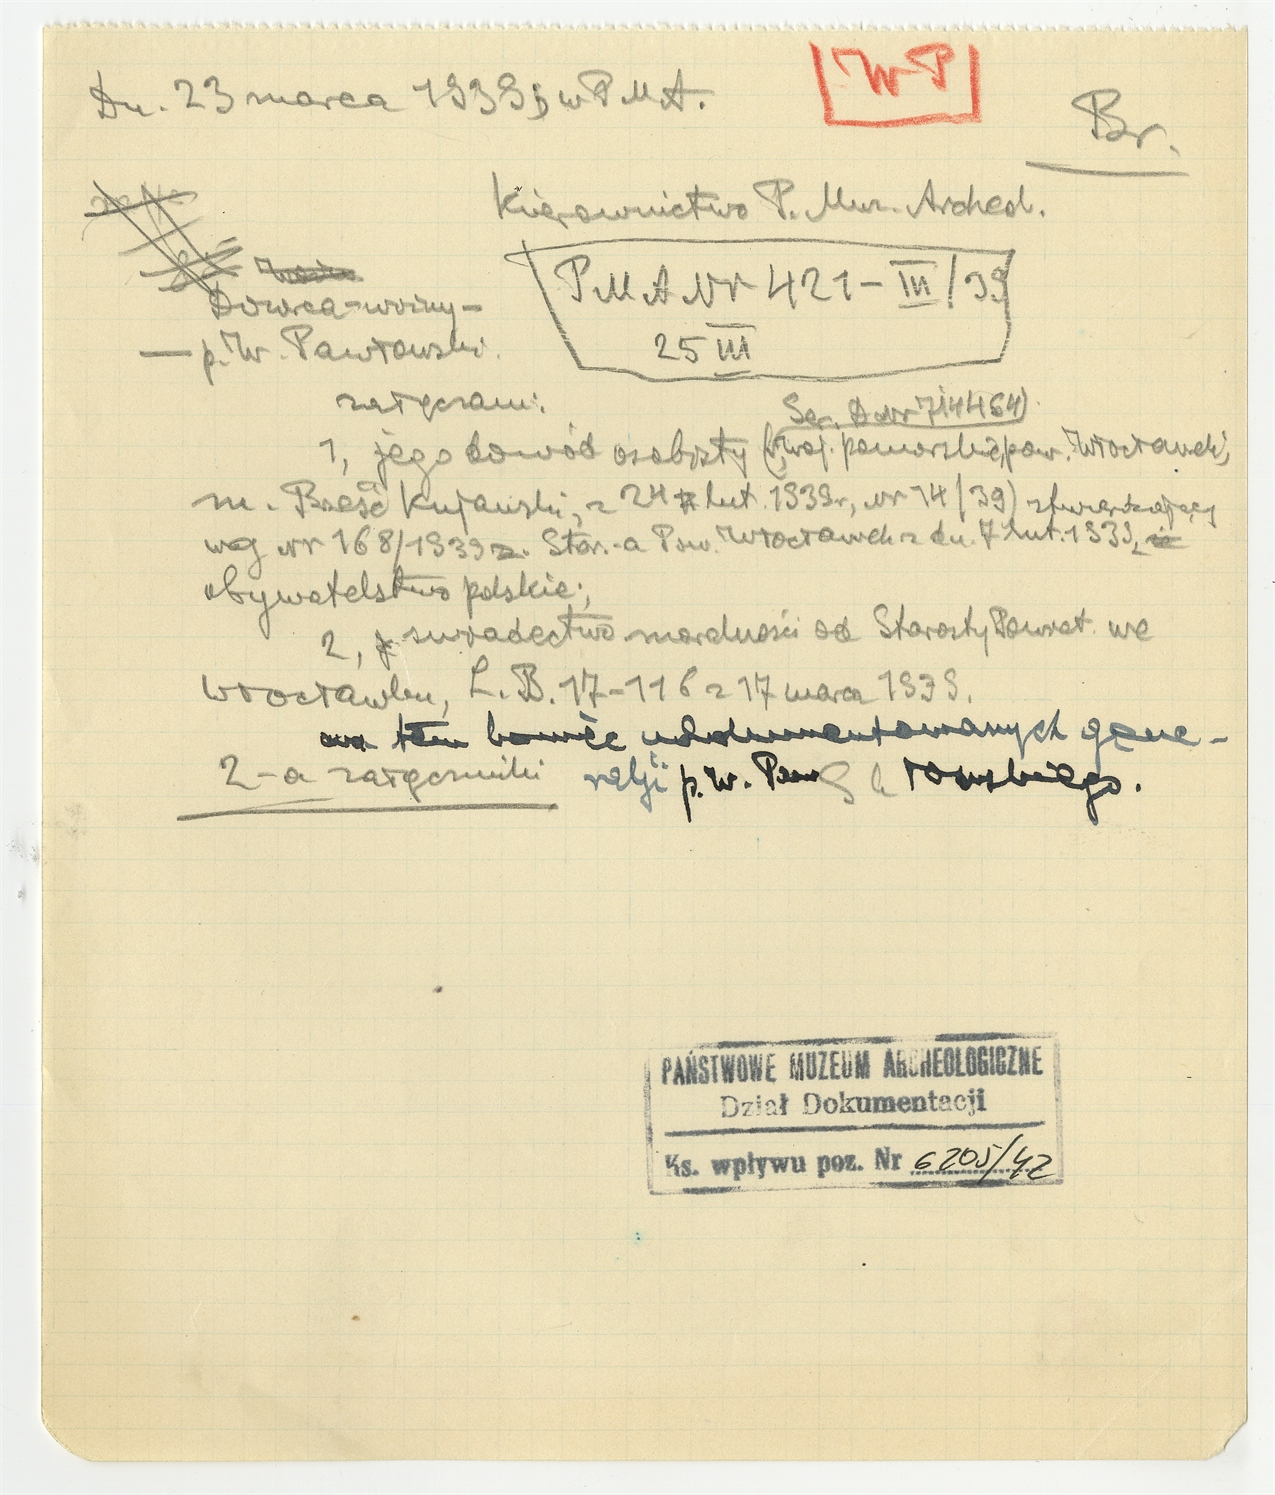 Dn. 23 marca 1939, w P M A.
W P
Br.
Kierownictwo P. Muz. Archeol.
P M A Nr 421 – III/39
25 III
Dozorca-woźny –
— p. W. Pawłowski.
załączam:
Ser. D Nr 714464)
1, jego dowód osobisty (woj. pomorskie, pow. Włocławek,
m. Brześć Kujawski, z 24 lut. 1939 r, nr 14/39) stwierdzający
wg nr 168/1939 z. Star-a Pow. Włocławek z dn. 7 lut. 1939,
obywatelstwo polskie;
2, świadectwo moralności od Starosty Powiat. we
Włocławku, L. B. 17-116 z 17 marca 1939.
na tem koniec udokumentowanych gene-
2-a załączniki ralji p. W. Pawłowskiego.
PAŃSTWOWE MUZEUM ARCHEOLOGICZNE
Dział Dokumentacji
Ks. wpływu poz. Nr 6205/42